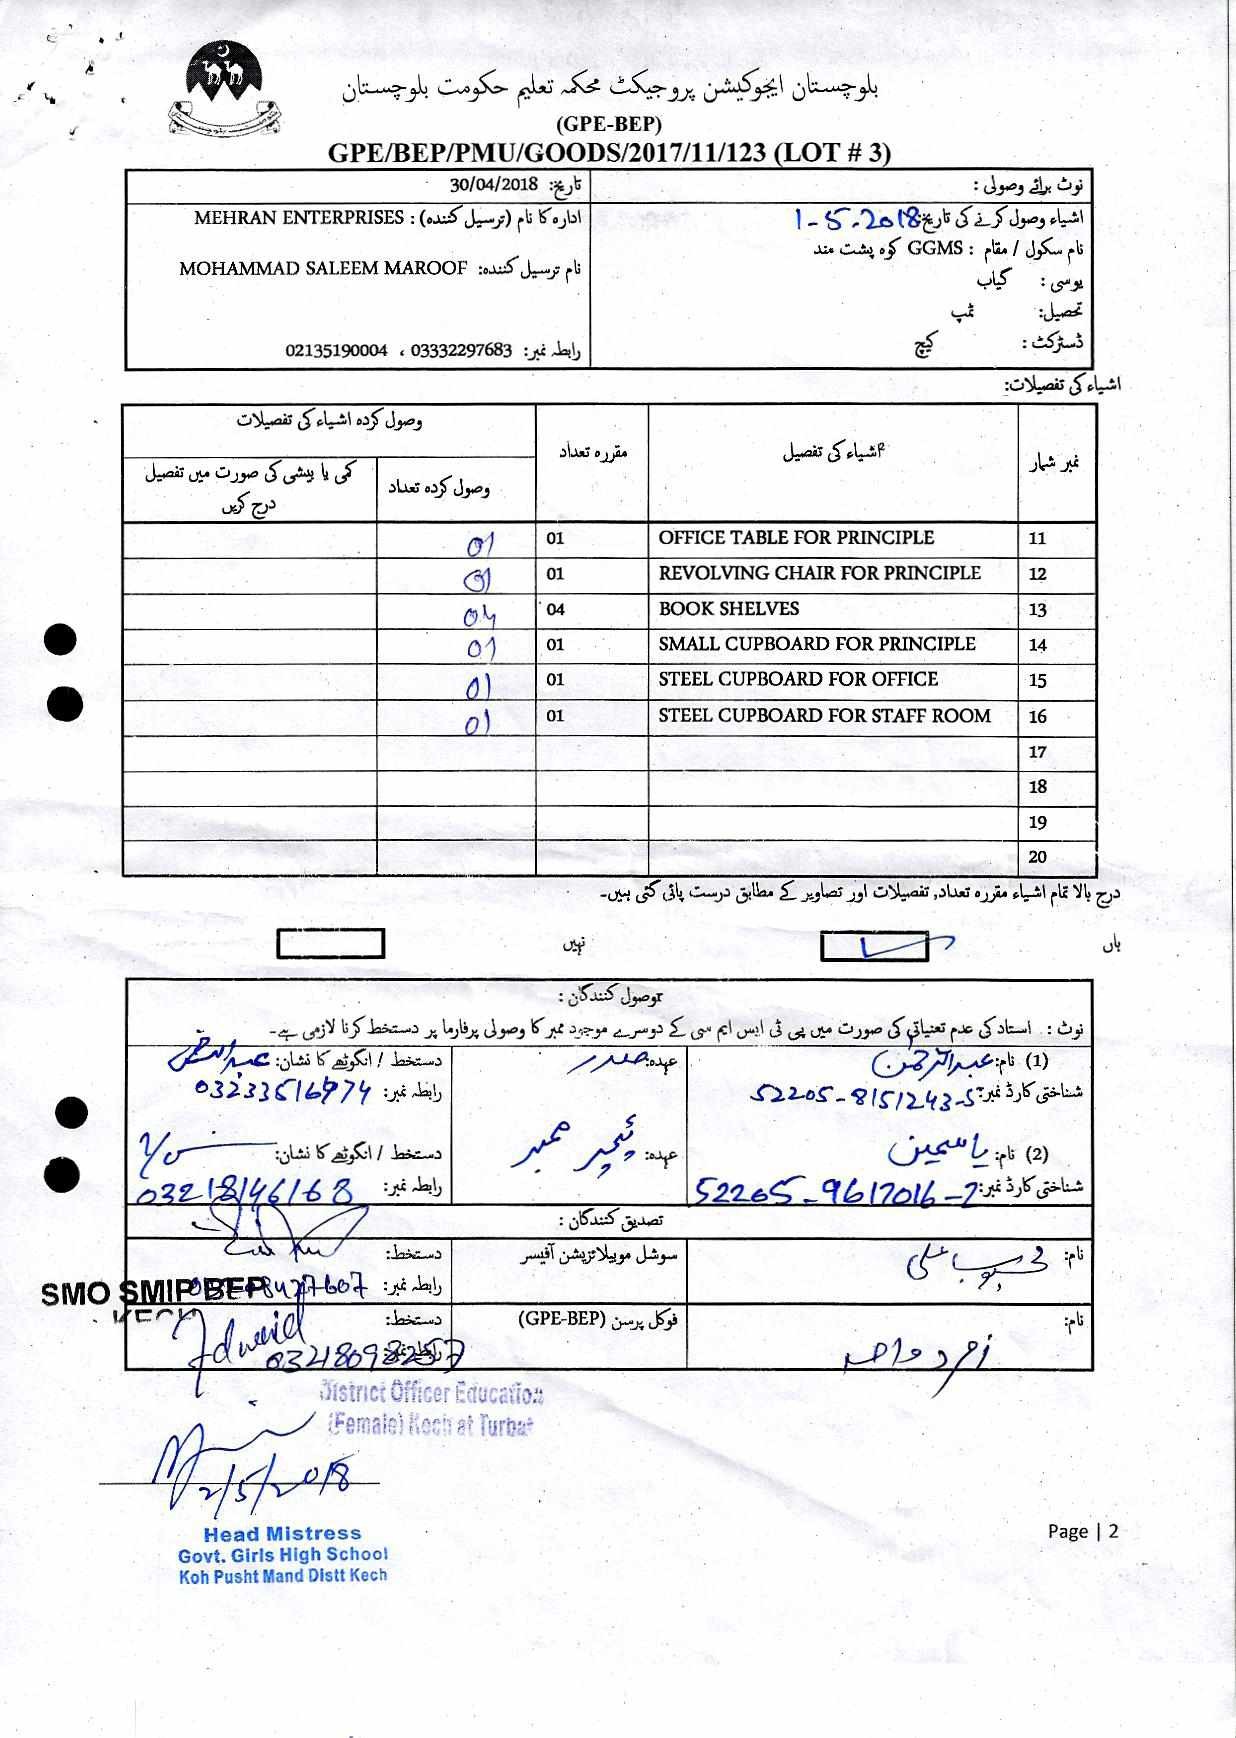 بلوچستان ایجوکیشن پروجیکٹ محکمہ تعلیم حکومت بلوچستان
(GPE-BEP)
GPE/BEP/PMU/GOODS/2017/11/123 (LOT # 3)
نوٹ برائے وصولی :
اشیاء وصول کرنے کی تاریخ: 1-5-2018
نام سکول / مقام : GGMS کوہ پشت مند
یوسی : گیاب
تحصیل: تمپ
ڈسٹرکٹ : کیچ
تاریخ: 30/04/2018
ادارہ کا نام (ترسیل کنندہ) : MEHRAN ENTERPRISES
نام ترسیل کنندہ: MOHAMMAD SALEEM MAROOF
رابطہ نمبر: 03332297683 ، 02135190004
اشیاء کی تفصیلات:
نمبر شمار اشیاء کی تفصیل مقررہ تعداد وصول کردہ اشیاء کی تفصیلات
وصول کردہ تعداد کمی یا بیشی کی صورت میں تفصیل درج کریں
11 OFFICE TABLE FOR PRINCIPLE 01 01
12 REVOLVING CHAIR FOR PRINCIPLE 01 01
13 BOOK SHELVES 04 04
14 SMALL CUPBOARD FOR PRINCIPLE 01 01
15 STEEL CUPBOARD FOR OFFICE 01 01
16 STEEL CUPBOARD FOR STAFF ROOM 01 01
17
18
19
20
درج بالا تمام اشیاء مقررہ تعداد, تفصیلات اور تصاویر کے مطابق درست پائی گئی ہیں۔
ہاں نہیں
توصول کنندگان :
نوٹ : استاد کی عدم تعیناتی کی صورت میں پی ٹی ایس ایم سی کے دوسرے موجود ممبر کا وصولی پرفارما پر دستخط کرنا لازمی ہے۔
(1) نام: عبدالرحمن عہدہ: صدر دستخط / انگوٹھے کا نشان:
شناختی کارڈ نمبر: 52205-8151243-5 رابطہ نمبر: 03233516974
(2) نام: یاسمین عہدہ: ٹیچر ممبر دستخط / انگوٹھے کا نشان:
شناختی کارڈ نمبر: 52205-9617016-2 رابطہ نمبر: 03218146168
تصدیق کنندگان :
نام: سوشل موبیلائزیشن آفیسر دستخط:
رابطہ نمبر:
SMO SMIP BEP
KECH
نام: فوکل پرسن (GPE-BEP) دستخط:
رابطہ نمبر: 03218098257
District Officer Education
(Female) Kech at Turbat
2/5/2018
Head Mistress
Govt. Girls High School
Koh Pusht Mand Distt Kech
Page | 2